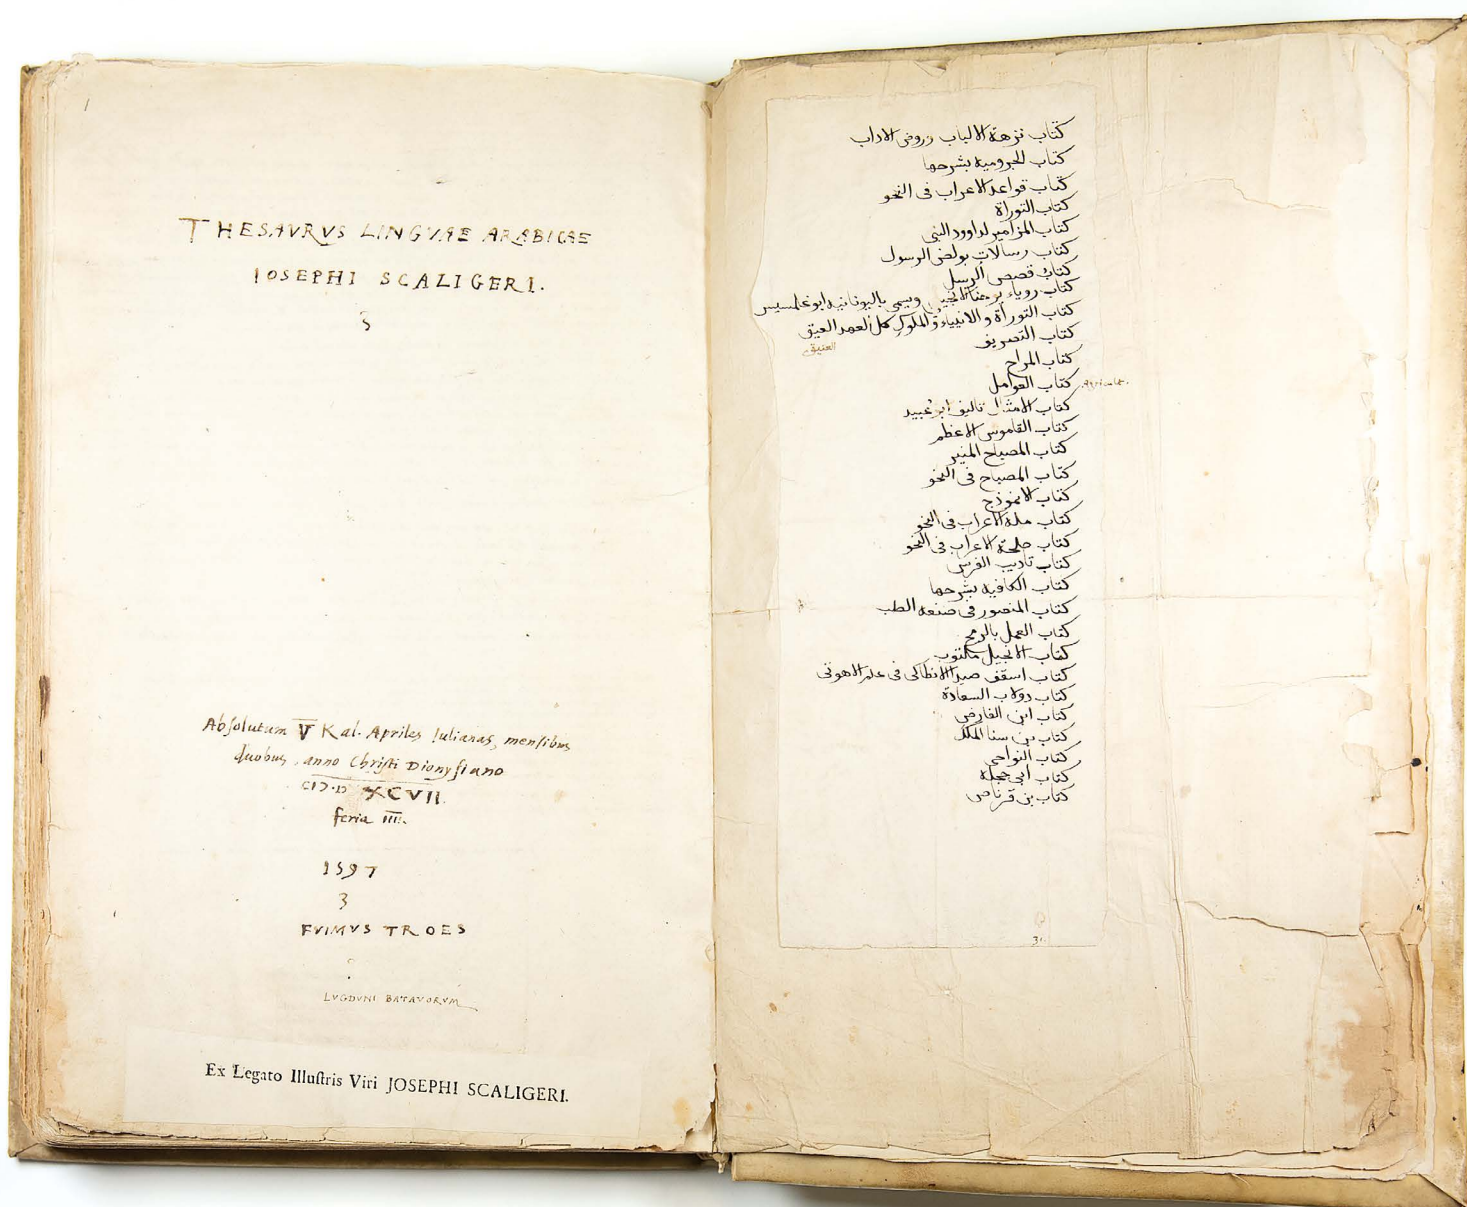 THESAVRVS LINGVAE ARABICAE
IOSEPHI SCALIGERI.
3
Absolutum V Kal. Apriles Iulianas, mensibus
duobus, anno Christi Dionysiano
CIↃ.D XCVII.
feria IIII.
1597
3
FVIMVS TROES
LVGDVNI BATAVORVM
Ex Legato Illuſtris Viri JOSEPHI SCALIGERI.
كتاب نزهة الالباب وروض الاداب
كتاب الجروميه بشرحها
كتاب قواعد الاعراب فى النحو
كتاب التوراة
كتاب المزامير لداوود النبى
كتاب رسالات بولص الرسول
كتاب قصص الرسل
كتاب روياء يوحنا ويسمى باليونانيه ابوغلمسيس
كتاب التوراة والانبياء والملوك كل العهد العيق
العتيق
كتاب التصريف
كتاب المراح
كتاب العوامل
كتاب الامثال تاليف ابو عبيد
كتاب القاموس الاعظم
كتاب المصباح المنير
كتاب المصباح فى النحو
كتاب الانموذج
كتاب ملة الاعراب فى النحو
كتاب ملحة الاعراب فى النحو
كتاب تاديب الفرس
كتاب الكافيه بشرحها
كتاب المنصور فى صنعه الطب
كتاب العمل بالرمح
كتاب الانجيل مكتوب
كتاب اسقف صيدا الانطاكى فى علم الاهوتى
كتاب دولاب السعادة
كتاب ابن الفارض
كتاب بن سنا الملك
كتاب النواحى
كتاب ابى حجله
كتاب بن قرناص
31